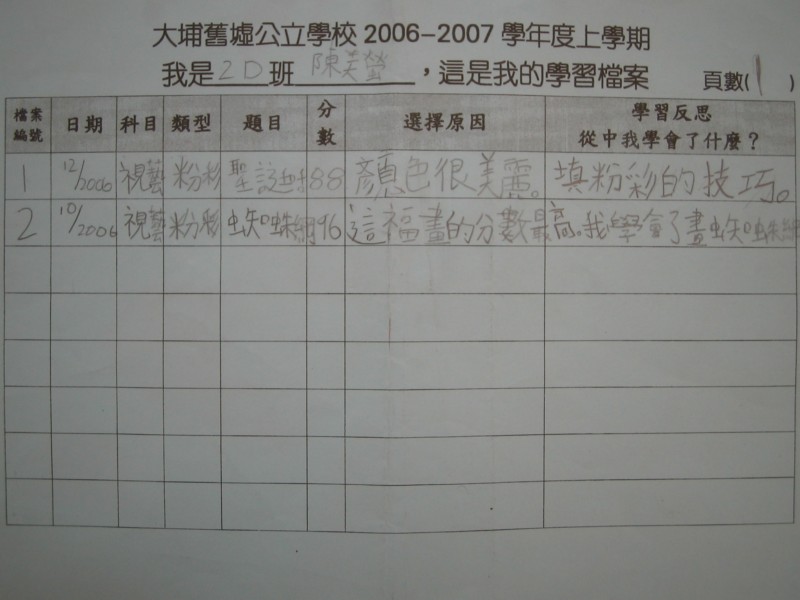 大埔舊墟公立學校 2006-2007 學年度上學期
我是 2D 班 陳美瑩，這是我的學習檔案 頁數(1)
檔案編號 日期 科目 類型 題目 分數 選擇原因 學習反思 從中我學會了什麼？
1 12/2006 視藝 粉彩 聖誕 88 顏色很美麗。 填粉彩的技巧。
2 10/2006 視藝 粉彩 蜘蛛網 96 這福畫的分數最高。 我學會了畫蜘蛛網